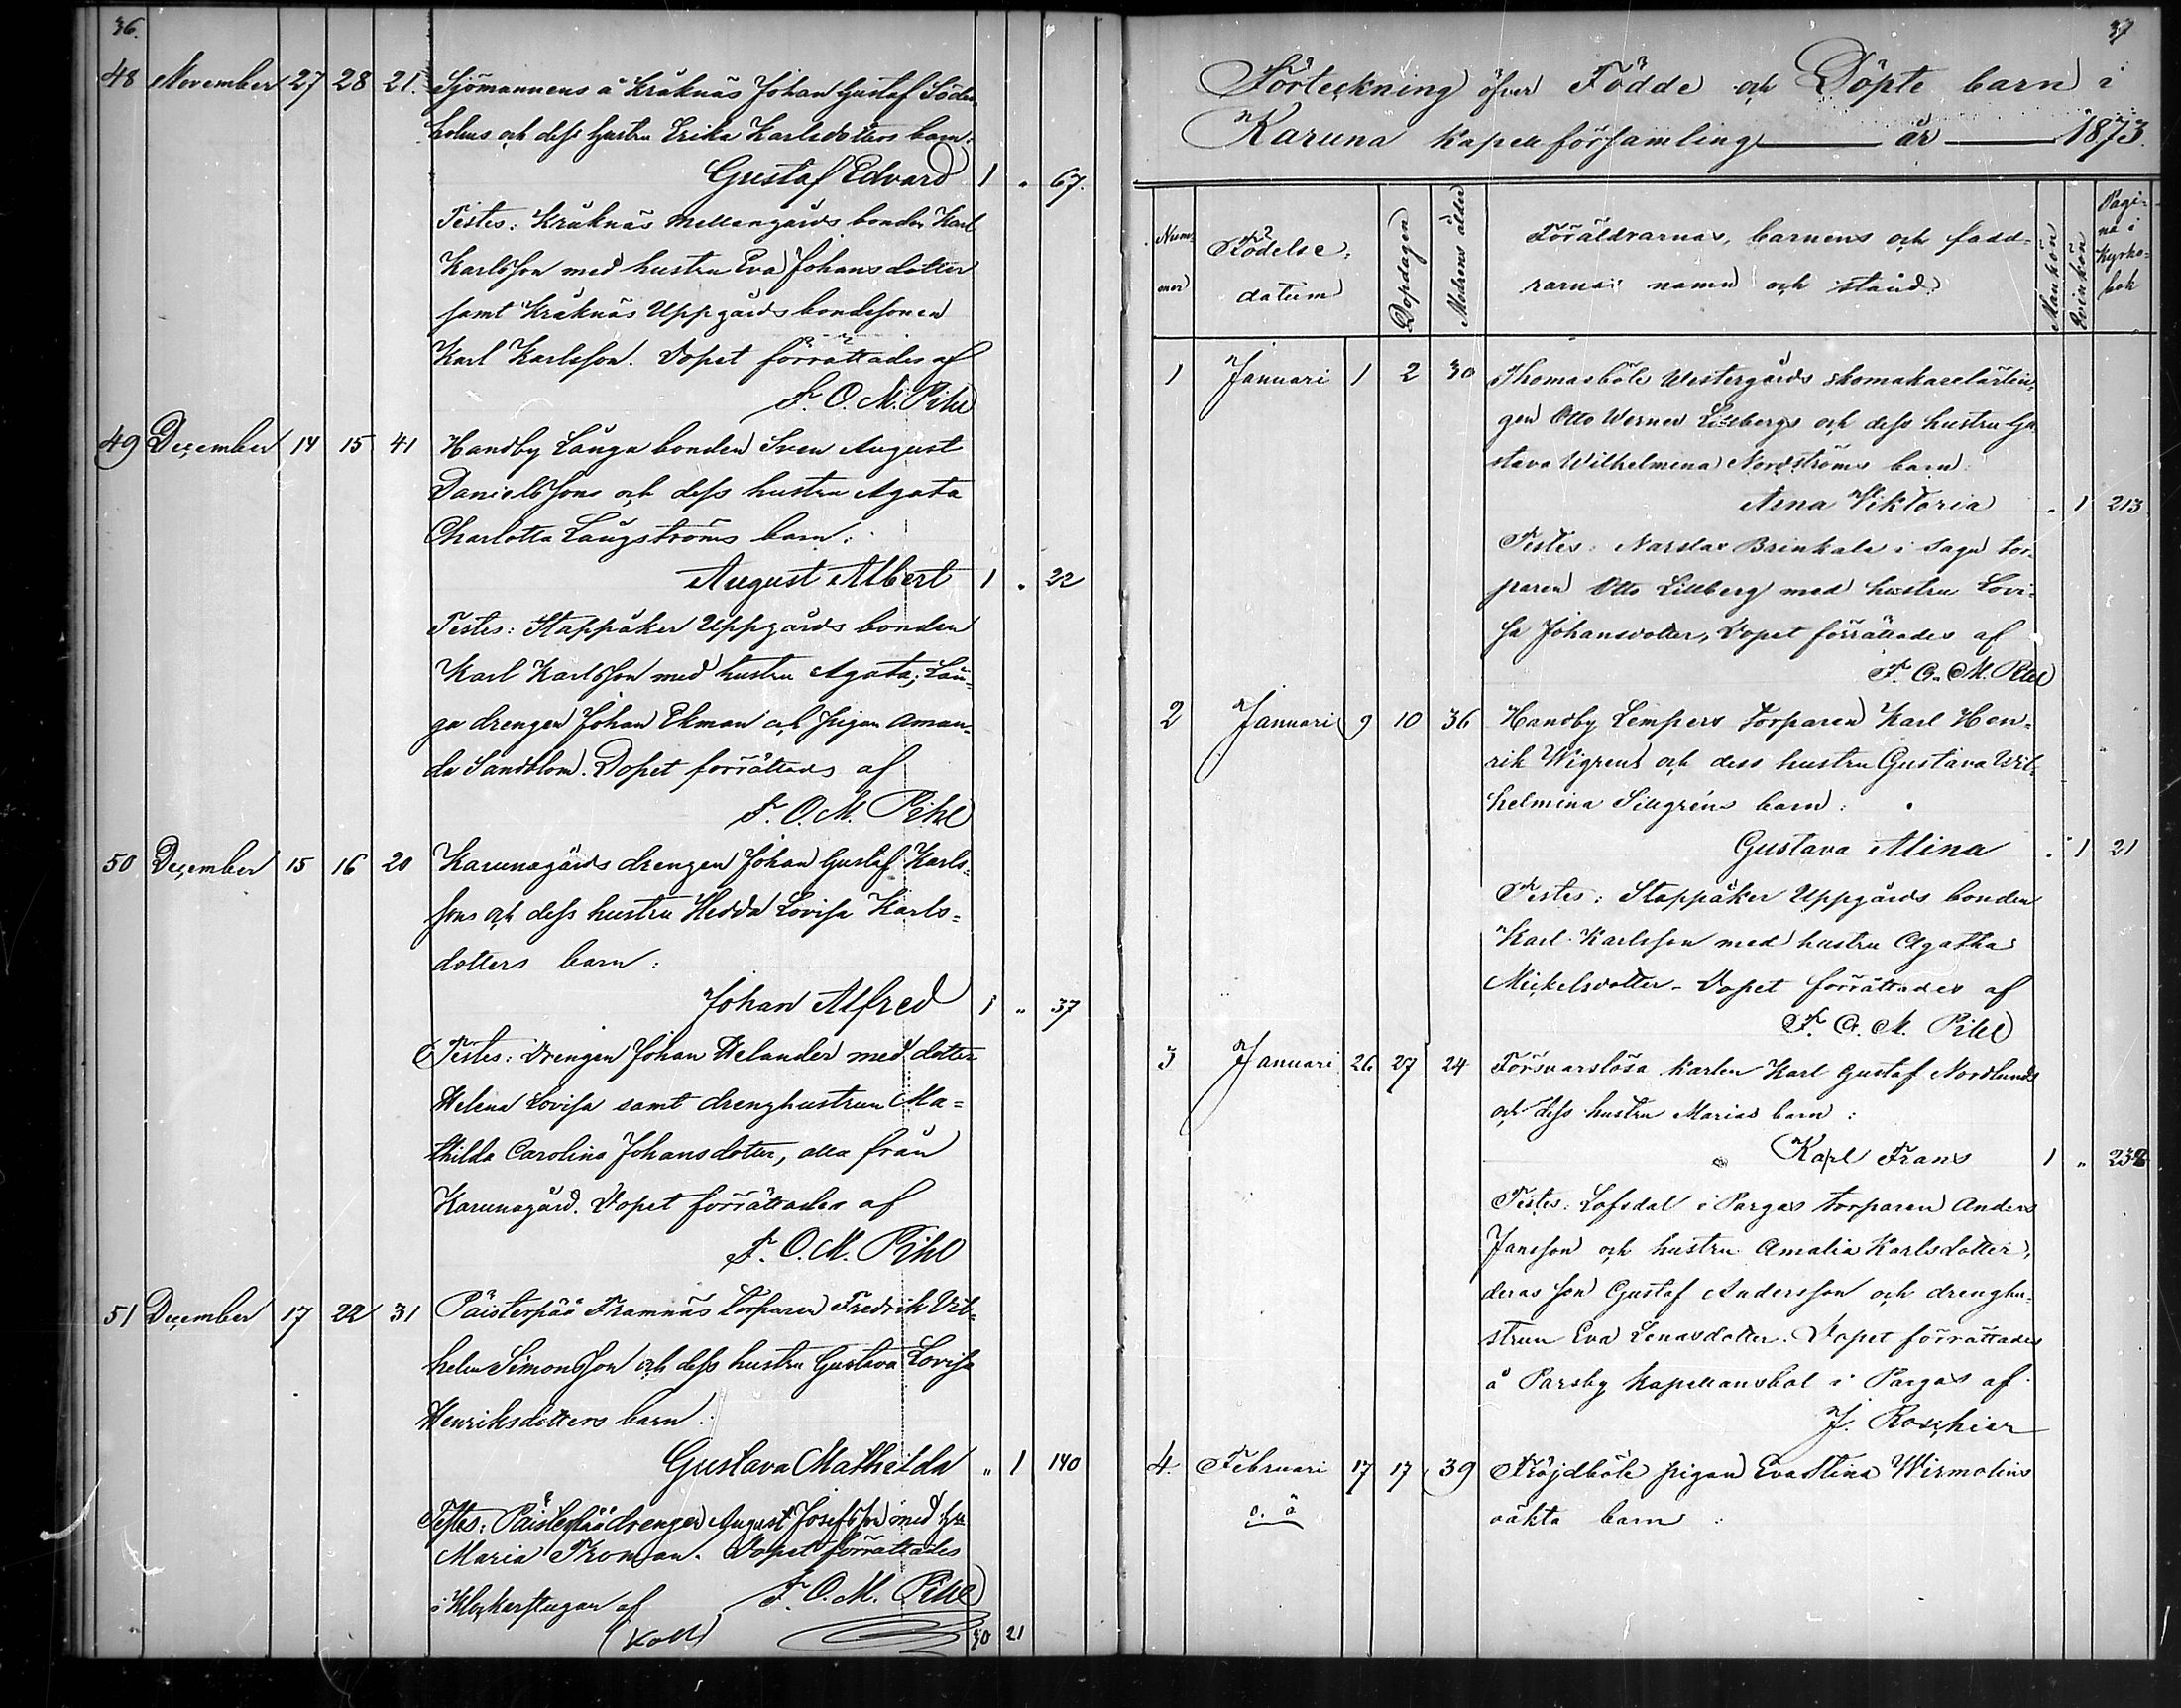 36.
48 November 27 28 21. Sjömannens å Kråknäs Johan Gustaf Söder-
holms och dess hustru Erika Karlsdotters barn:
Gustaf Edvard 1 " 67.
Testes: Kråknäs Mellangårds bonden Karl
Karlsson med hustru Eva Johansdotter
samt Kråknäs Uppgårds bondesonen
Karl Karlsson. Dopet förrättades af
F. O. M. Pihl
49 December 14 15 41 Handby Långa bonden Sven August
Danielssons och dess hustru Agata
Charlotta Långströms barn:
August Albert 1 " 22
Testes: Stappåker Uppgårds bonden
Karl Karlsson med hustru Agata; Lån-
ga drengen Johan Ekman och pigan Aman-
da Sandblom. Dopet förrättads af
F. O. M. Pihl
50 December 15 16 20 Karunagårds drengen Johan Gustaf Karls-
sons och dess hustru Hedda Lovisa Karls=
dotters barn:
Johan Alfred 1 " 37
Testes: Drengen Johan Helander med dotter
Helena Lovisa samt drenghustrun Ma=
thilda Carolina Johansdotter, alla från
Karunagård. Dopet förrättades af
F. O. M. Pihl
51 December 17 22 31 Päisterpää Framnäs torparen Fredrik Vil-
helm Simonsson och dess hustru Gustava Lovisa
Henriksdotters barn:
Gustava Mathilda " 1 140
Testes: Päisterpää drengen August Josefsson med hu
Maria Troman. Dopet förrättades
i Klockarstugan af F. O. M. Pihl
(Koll) 30 21
37
Förteckning öfver Födde och Döpte barn i
Karuna kapellförsamling år 1873.
Num-
mer
Födelse-
datum
Dopdagen
Modrens ålder
Föräldrarnas, barnens och fadd-
rarnas namn och stånd.
Mankön
Qvinkön
Pagi-
na i
Kyrko-
bok
1 Januari 1 2 30 Thomasböle Westergårds skomakarelärlin-
gen Otto Werner Lillbergs och dess hustru Gu-
stava Wilhelmina Nordströms barn:
Anna Viktoria " 1 213
Testes: Narstar Brinkala i Sagu tor-
paren Otto Lillberg med hustru Lovi-
sa Johansdotter, Dopet förrättades af
F. O. M. Pihl
2 Januari 9 10 36 Handby Lempers torparen Karl Hen-
rik Wigrens och dess hustru Gustava Wil-
helmina Sillgréns barn:
Gustava Alina " 1 21
Testes: Stappåker Uppgårds bonden
Karl Karlsson med hustru Agatha
Mickelsdotter - Dopet förrättades af
F. O. M. Pihl
3 Januari 26 27 24 Försvarslösa karlen Karl Gustaf Nordlunds
och dess hustru Marias barn:
Karl Frans 1 " 238
Testes: Lofsdal i Pargas torparen Anders
Jansson och hustru Amalia Karlsdotter,
deras son Gustaf Andersson och drenghu-
strun Eva Lenasdotter. Dopet förrättades
å Parsby Kapellansbol i Pargas af
J. Roschier
4. Februari 17 17 39 Fröjdböle pigan Eva Stina Wirmolins
o. ä oäkta barn: